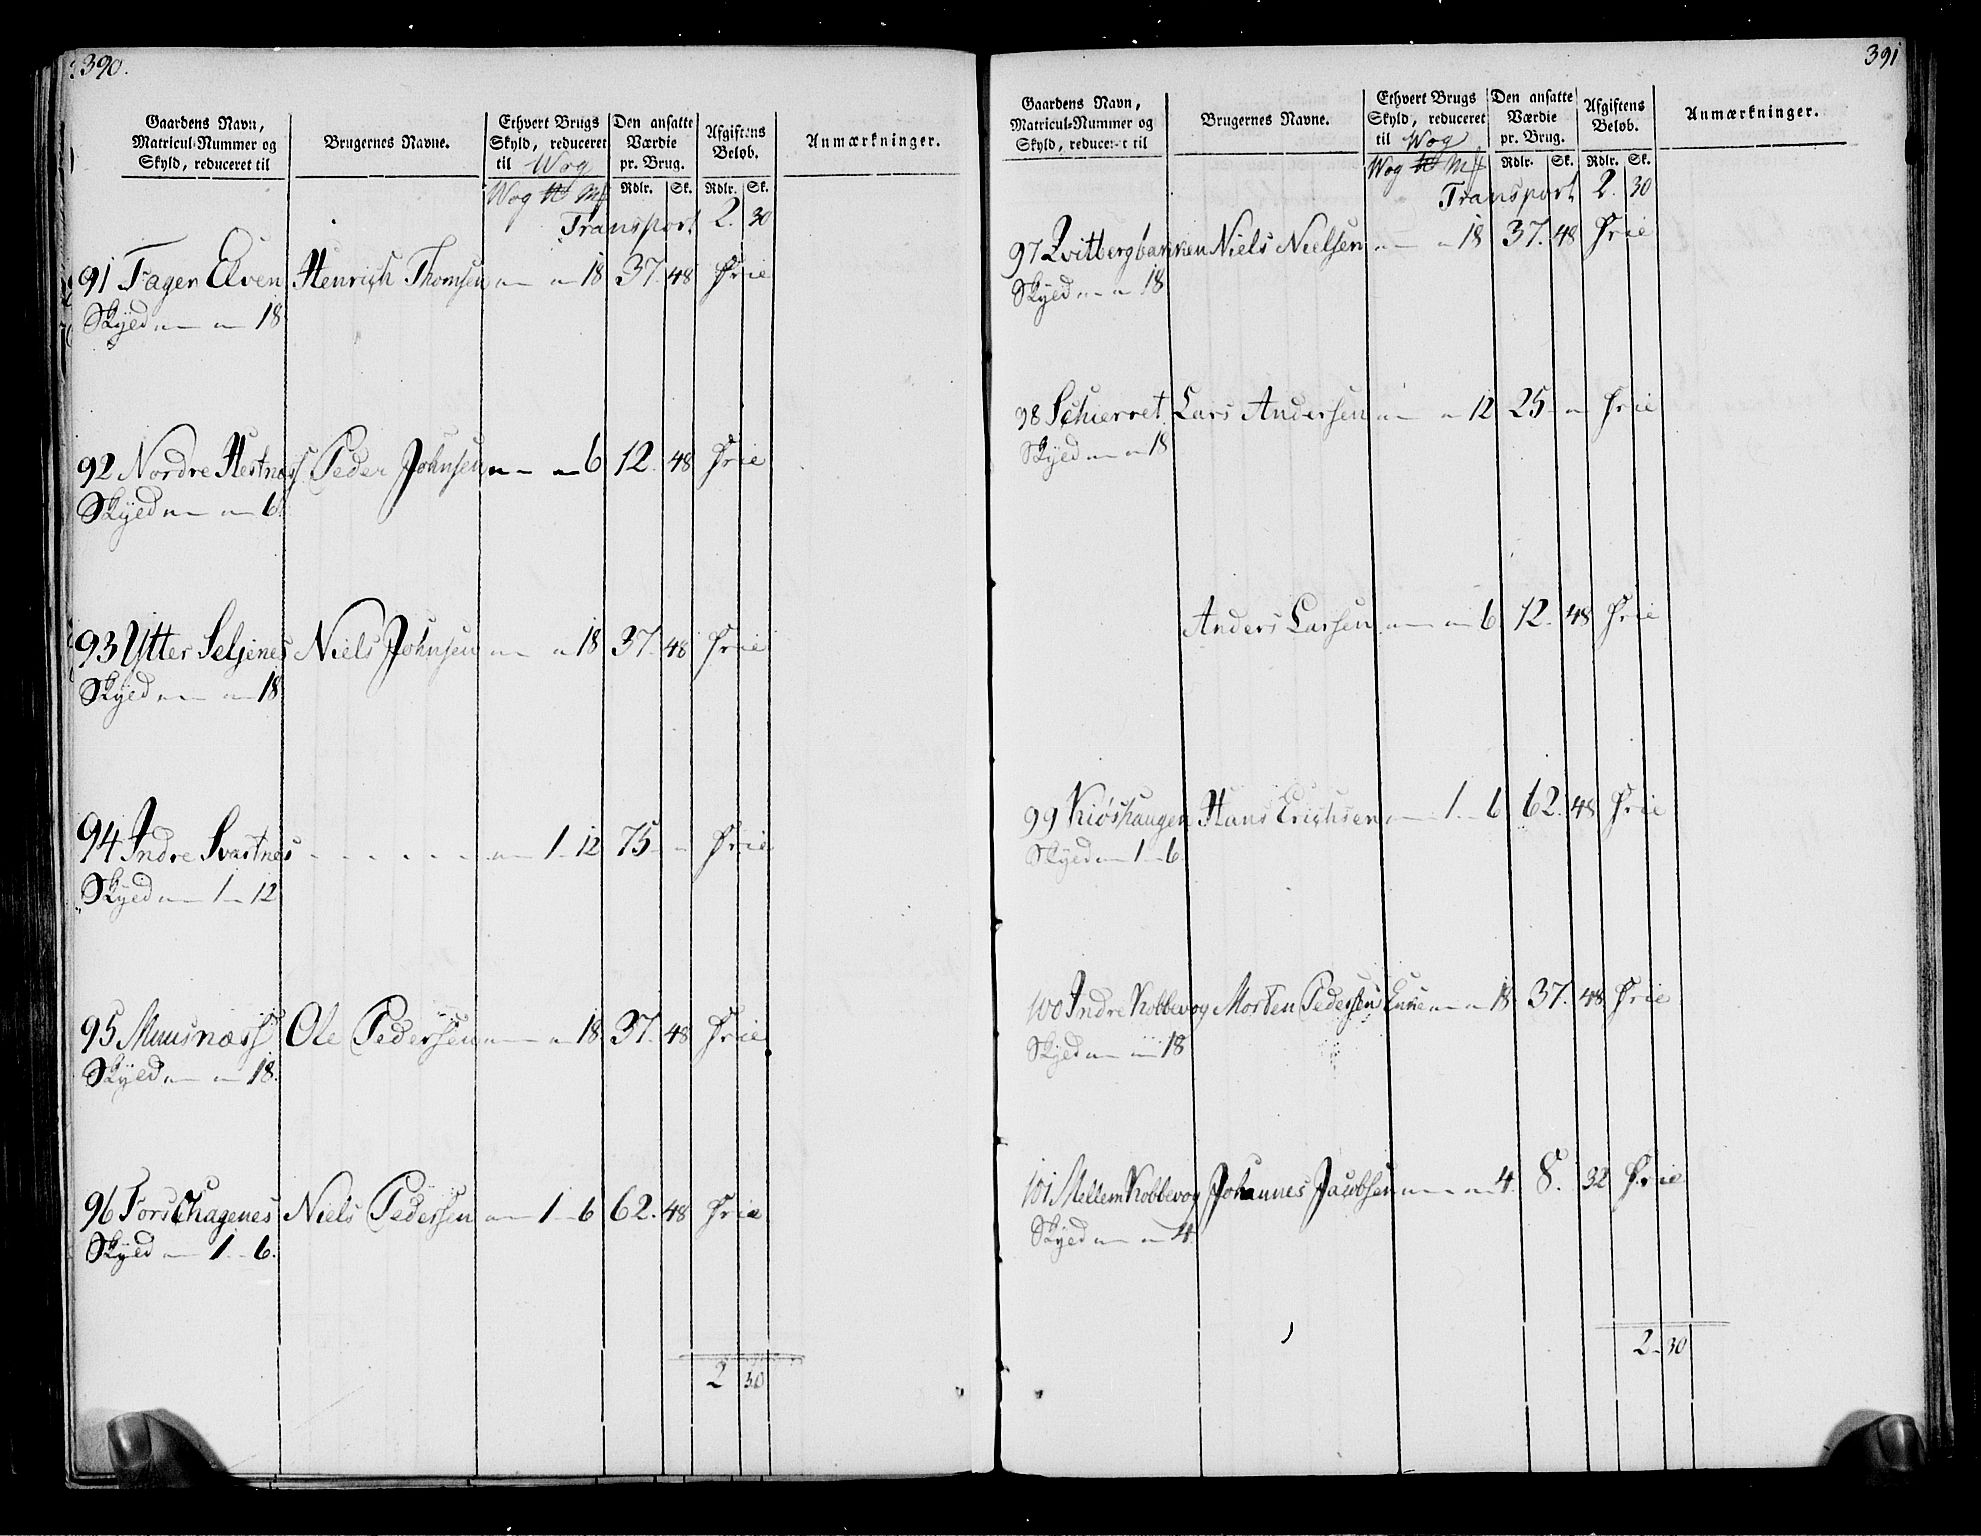 390.
Gaardens Navn, Matricul-Nummer og Skyld, reduceret til | Brugernes Navne. | Ethvert Brugs Skyld, reduceret til Wog | Den ansatte Værdie pr. Brug. | Afgiftens Beløb. | Anmærkninger.
Wog ℔ Mk | Rdlr. | Sk. | Rdlr. | Sk.
Transport 2. 30
91 Fager Elven Henrich Thomsen " " 18 37. 48 Frie
Skyld " " 18
92 Nordre Hestness Peder Johnsen " " 6 12. 48 Frie
Skyld " " 6
93 Ytter Seljenes Niels Johnsen " " 18 37. 48 Frie
Skyld " " 18
94 Indre Svartnes - - - - - " 1 12 75 - " Frie
Skyld " 1 " 12
95 Muusnæss Ole Pedersen " " 18 37. 48 Frie
Skyld " " 18.
96 Forschagenes Niels Pedersen " 1 6 62. 48 Frie
Skyld " 1 - 6.
2 30
391
Gaardens Navn, Matricul-Nummer og Skyld, reduceret til | Brugernes Navne. | Ethvert Brugs Skyld, reduceret til Wog | Den ansatte Værdie pr. Brug. | Afgiftens Beløb. | Anmærkninger.
Wog ℔ Mk | Rdlr. | Sk. | Rdlr. | Sk.
Transport 2. 30
97 Qvitbergbakken Niels Nielsen " " 18 37. 48 Frie
Skyld " " 18
98 Schierret Lars Andersen " " 12 25 - " Frie
Skyld " " 18
Anders Larsen " " 6 12. 48 Frie
99 Kiøshaugen Hans Erichsen " 1. 6 62. 48 Frie
Skyld " 1 - 6
100 Indre Kobbevog Morten Pedersens Enke " " 18 37. 48 Frie
Skyld " " 18
101 Mellem Kobbevog Johannes Jacobsen " " 4. 8. 32 Frie
Skyld " " 4
2 - 30